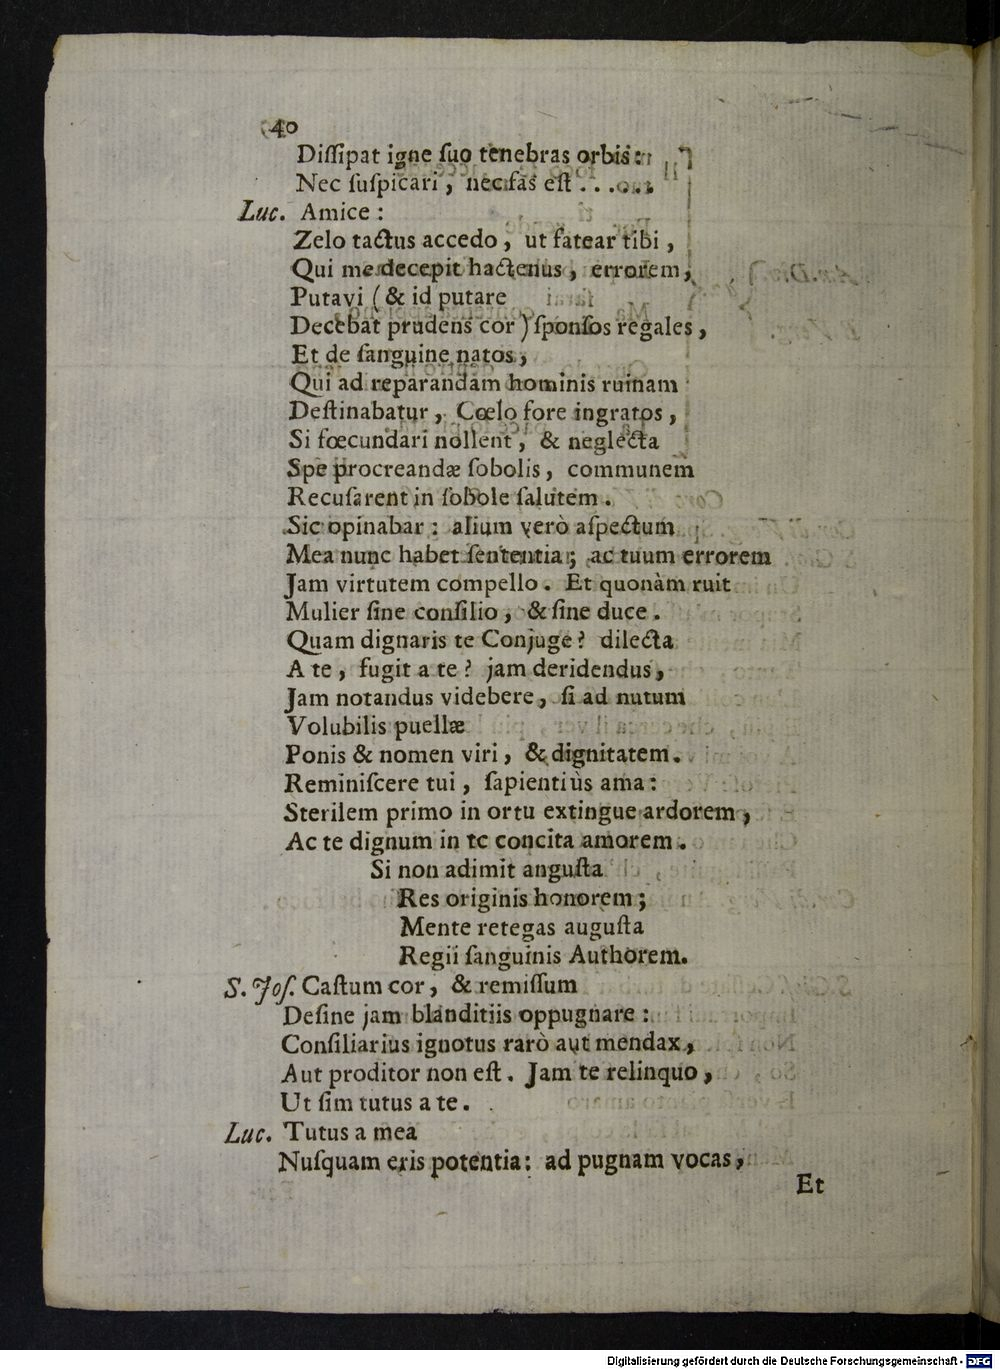 40
Diſſipat igne ſuo tenebras orbis:
Nec ſuſpicari, nec fas eſt . . . . . .
Luc. Amice:
Zelo tactus accedo, ut fatear tibi,
Qui me decepit hactenus, errorem,
Putavi (& id putare
Decebat prudens cor) ſponſos regales,
Et de ſanguine natos,
Qui ad reparandam hominis ruinam
Deſtinabatur, Cœlo fore ingratos,
Si fœcundari nollent, & neglecta
Spe procreandæ ſobolis, communem
Recuſarent in ſobole ſalutem.
Sic opinabar: alium verò aſpectum
Mea nunc habet ſententia; ac tuum errorem
Jam virtutem compello. Et quonàm ruit
Mulier ſine conſilio, & ſine duce.
Quam dignaris te Conjuge? dilecta
A te, fugit a te? jam deridendus,
Jam notandus videbere, ſi ad nutum
Volubilis puellæ
Ponis & nomen viri, & dignitatem.
Reminiſcere tui, ſapientiùs ama:
Sterilem primo in ortu extingue ardorem,
Ac te dignum in te concita amorem.
Si non adimit anguſta
Res originis honorem;
Mente retegas auguſta
Regii ſanguinis Authorem.
S. Joſ. Caſtum cor, & remiſſum
Deſine jam blanditiis oppugnare:
Conſiliarius ignotus rarò aut mendax,
Aut proditor non eſt. Jam te relinquo,
Ut ſim tutus a te.
Luc. Tutus a mea
Nuſquam eris potentia: ad pugnam vocas,
Et
Digitalisierung gefördert durch die Deutsche Forschungsgemeinschaft - DFG